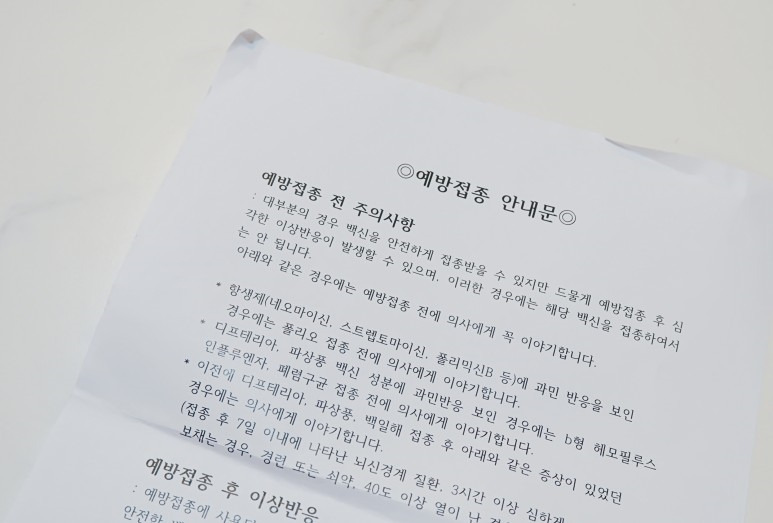 ◎예방접종 안내문◎
예방접종 전 주의사항
: 대부분의 경우 백신을 안전하게 접종받을 수 있지만 드물게 예방접종 후 심
각한 이상반응이 발생할 수 있으며, 이러한 경우에는 해당 백신을 접종하여서
는 안 됩니다.
아래와 같은 경우에는 예방접종 전에 의사에게 꼭 이야기합니다.
* 항생제(네오마이신, 스트렙토마이신, 폴리믹신B 등)에 과민 반응을 보인
경우에는 폴리오 접종 전에 의사에게 이야기합니다.
* 디프테리아, 파상풍 백신 성분에 과민반응 보인 경우에는 b형 헤모필루스
인플루엔자, 폐렴구균 접종 전에 의사에게 이야기합니다.
* 이전에 디프테리아, 파상풍, 백일해 접종 후 아래와 같은 증상이 있었던
경우에는 의사에게 이야기합니다.
(접종 후 7일 이내에 나타난 뇌신경계 질환, 3시간 이상 심하게
보채는 경우, 경련 또는 쇠약, 40도 이상 열이 난
예방접종 후 이상반응
: 예방접종에
안전한